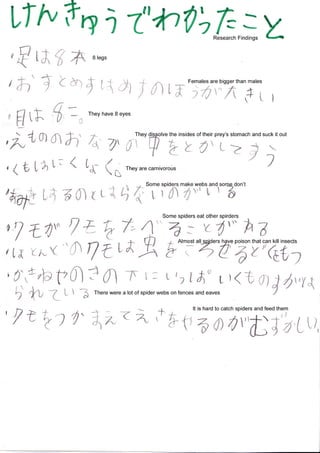 けんきゅうでわかったこと
Research Findings
・足は8本
8 legs
・おすとめすはめすのほうが大きい
Females are bigger than males
・目は8こ。
They have 8 eyes
・えもののおなかの中をとかしてすう
They dissolve the insides of their prey's stomach and suck it out
・くもはにくしょく。
They are carnivorous
・あみをはるのとはらないのがいる
Some spiders make webs and some don't
・クモがクモをたべることがある
Some spiders eat other spirders
・ほとんどのクモは虫をころせるどくをもつ
Almost all spiders have poison that can kill insects
・かきねやのきの下にいっぱいくものすがはられている
There were a lot of spider webs on fences and eaves
・クモをつかまえてえさをやるのがむずかしい。
It is hard to catch spiders and feed them